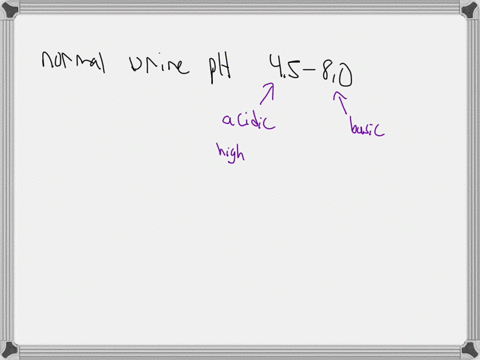 normal urine pH 4.5-8.0
acidic basic
high